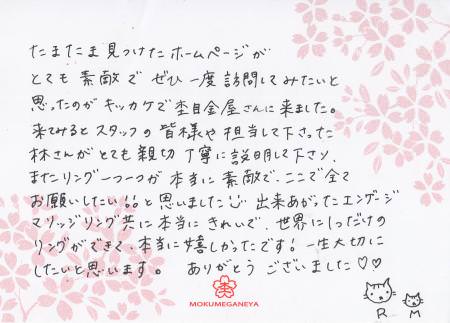 たまたま見つけたホームページが
とても素敵で ぜひ一度訪問してみたいと
思ったのがキッカケで杢目金屋さんに来ました。
来てみるとスタッフの皆様や担当して下さった
林さんがとても親切丁寧に説明して下さり、
またリング一つ一つが本当に素敵で、ここで全て
お願いしたい!!と思いました 出来あがったエンゲージ
マリッジリング共に本当にきれいで、世界に1つだけの
リングができて、本当に嬉しかったです!一生大切に
したいと思います。 ありがとうございました♡♡
MOKUMEGANEYA
R M